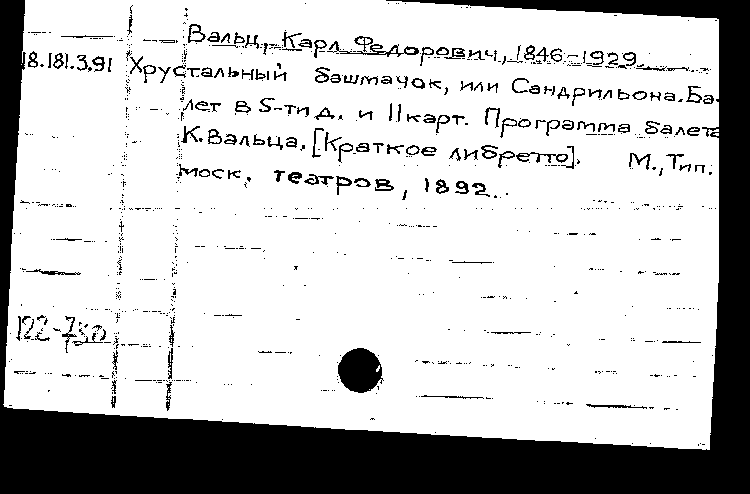 Вальц, Карл Федорович, 1846-1929.
18.181.3.91 Хрустальный башмачок, или Сандрильона. Ба-
лет в 5-ти д. и 11 карт. Программа балета
К. Вальца. [Краткое либретто]. М., Тип.
моск. театров, 1892.
122-750